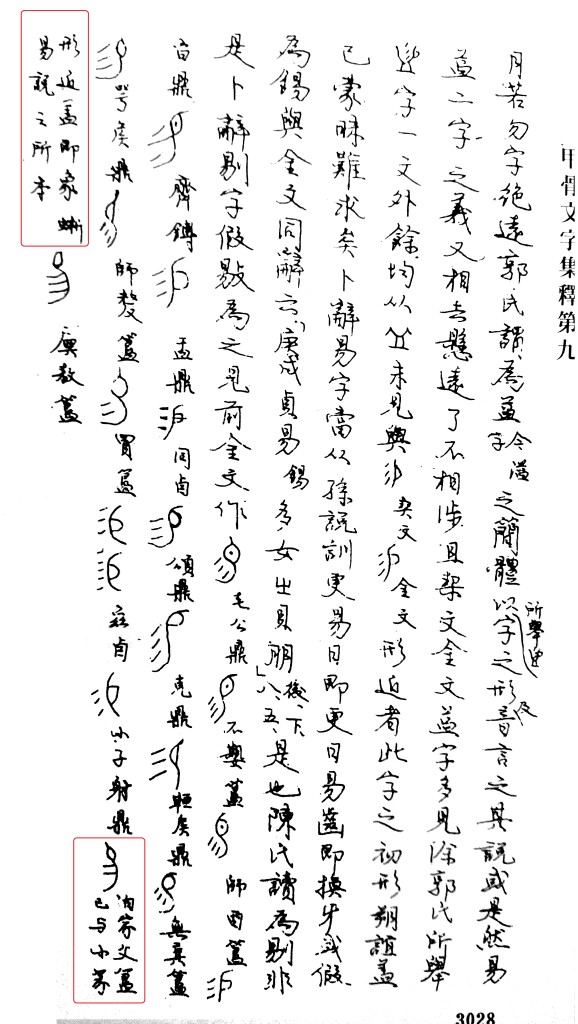 甲骨文字集釋第九
月若勿字絕遠郭氏謂爲益字今溢之簡體以所舉字之形及音言之其說或是然易
益二字之義又相去懸遠了不相涉且栔文金文益字多見除郭氏所舉
字一文外餘均从 未見與 契文 金文形近者此字之初形朔誼蓋
已蒙昧難求矣卜辭易字當从孫說訓更易日即更日易齒即換牙或假
爲錫與金文同辭云「庚戌貞易錫多女㞢貝朋」後、下、八、五、是也陳氏讀爲剔非
是卜辭剔字假 爲之見前金文作 毛公鼎 不 簋 師酉簋
鼎 齊鎛 盂鼎 同卣 頌鼎 克鼎 侯鼎 無 簋
噩侯鼎 師 簋 買簋 卣 小子射鼎 家父簋已与小篆
形近蓋即象蜥易說之所本 簋
3028